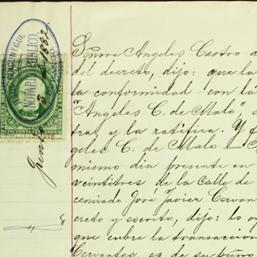 NOTARIO PUBLICO
Junio 3
Señora Angeles Castro d
del decreto, dijo: que la
la conformidad con la
"Angeles C. de Malo" s
tral y la ratifica. Y f
geles C. de Malo
mismo dia presente en
veintitres de la Calle de
cenciado José Javier Cervan
creto y escrito, dijo: lo oy
que cubre la transaccion
Cervantes, es de su puño